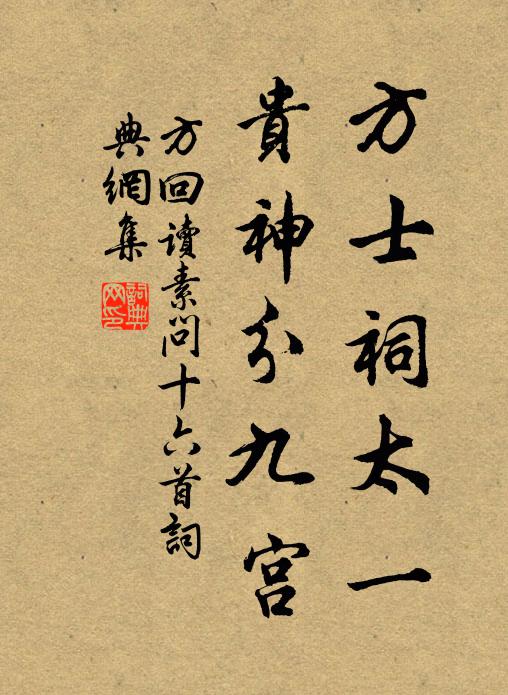 方士祠太一
貴神分九宮
方回讀素問十六首詞
典網集
詞典網印